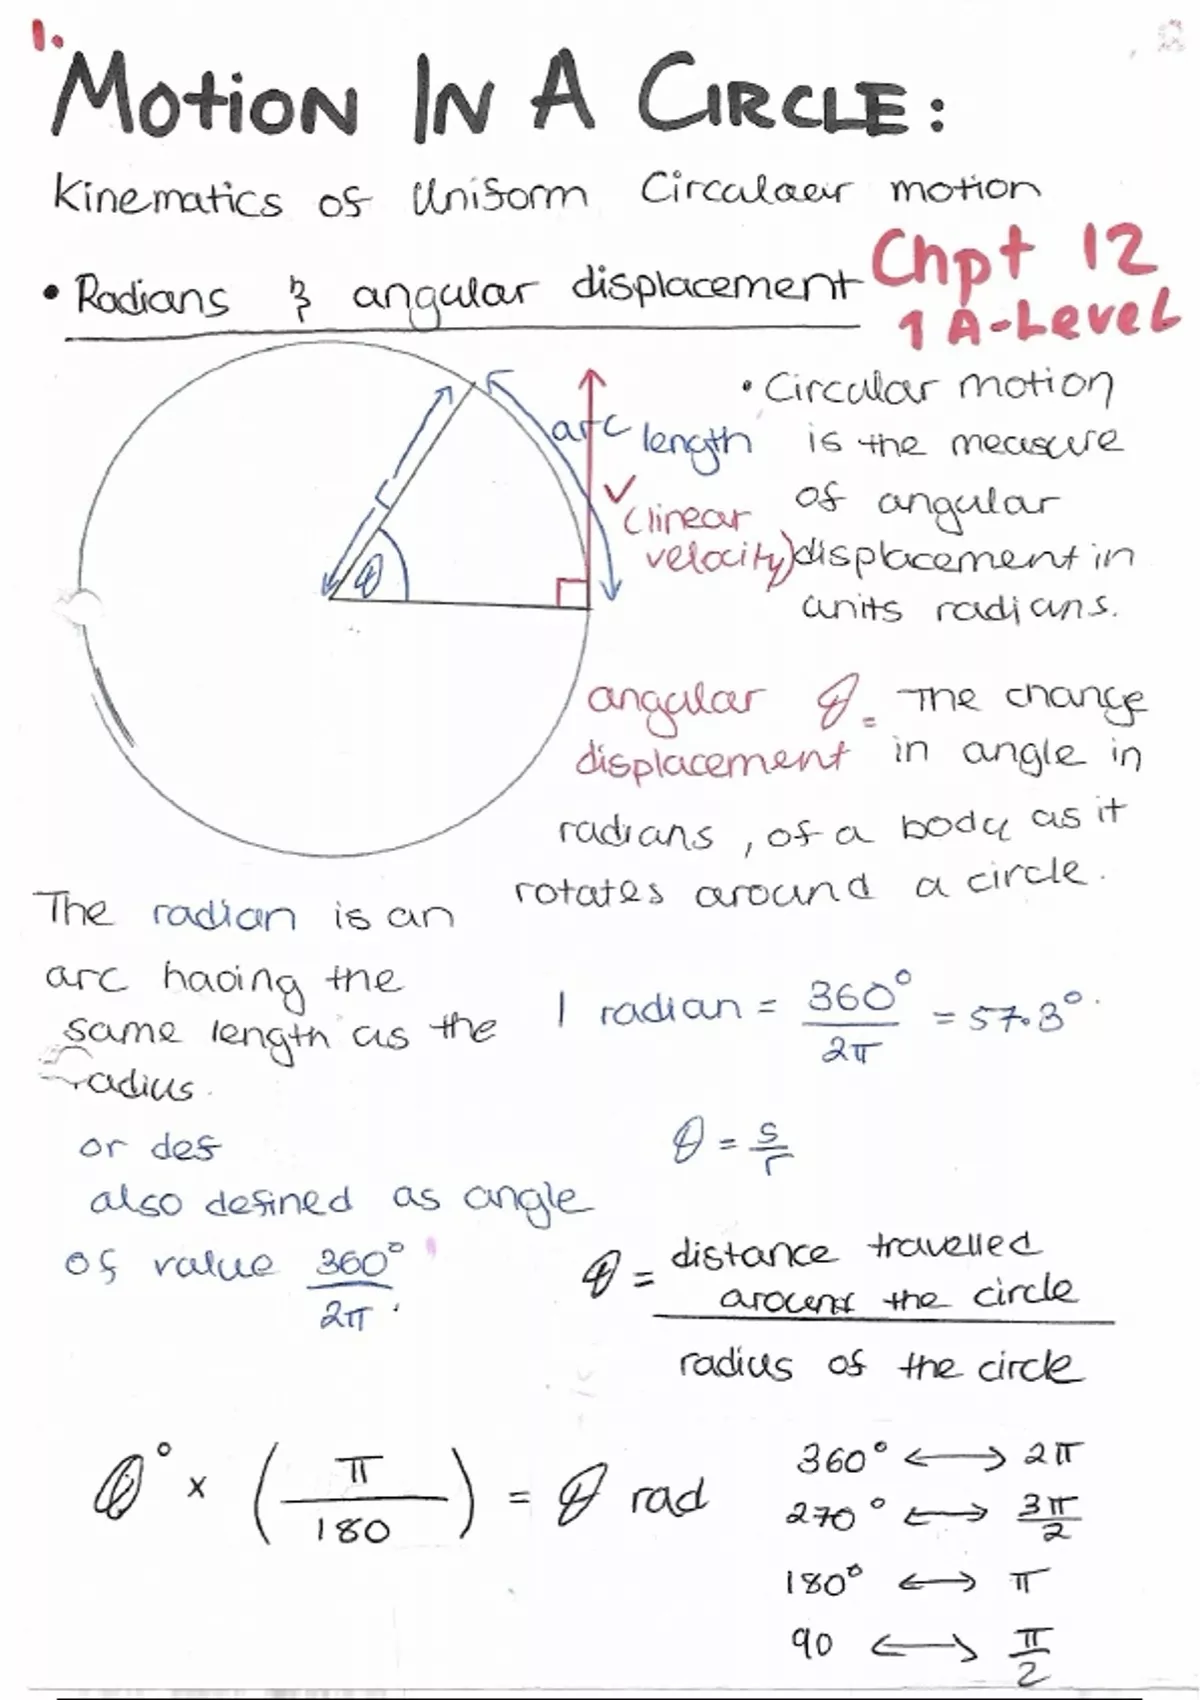 1.
MOTION IN A CIRCLE:
Kinematics of Uniform Circulaer motion
• Radians & angular displacement
Chpt 12
1 A-Level
• Circular motion
is the measure
of angular
displacement in
units radians.
arc length
v
(linear
velocity)
r
θ
angular θ = The change
displacement in angle in
radians, of a body as it
rotates around a circle.
The radian is an
arc having the
same length as the
radius.
or def
also defined as angle
of value 360°
2π.
1 radian = 360° = 57.3°.
2π
θ = s
r
θ = distance travelled
around the circle
radius of the circle
θ° × ( π ) = θ rad
180
360° ⟷ 2π
270° ⟷ 3π
2
180° ⟷ π
90 ⟷ π
2